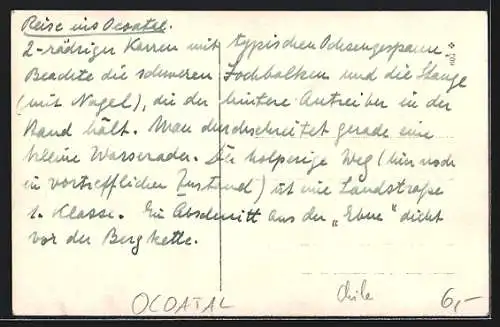 Reise ins Ocoatal.
2-rädriger Karren mit typischem Ochsengespann.
Beachte die schweren Jochbalken und die Stange
(mit Nagel), die der hintere Antreiber in der
Hand hält. Man durchschreitet gerade eine
kleine Wasserader. Der holperige Weg (hier noch
in vortrefflichem Zustand) ist eine Landstraße
1. Klasse. Ein Abschnitt aus der „Ebne" dicht
vor der Bergkette.
OCOATAL
Chile
6,-